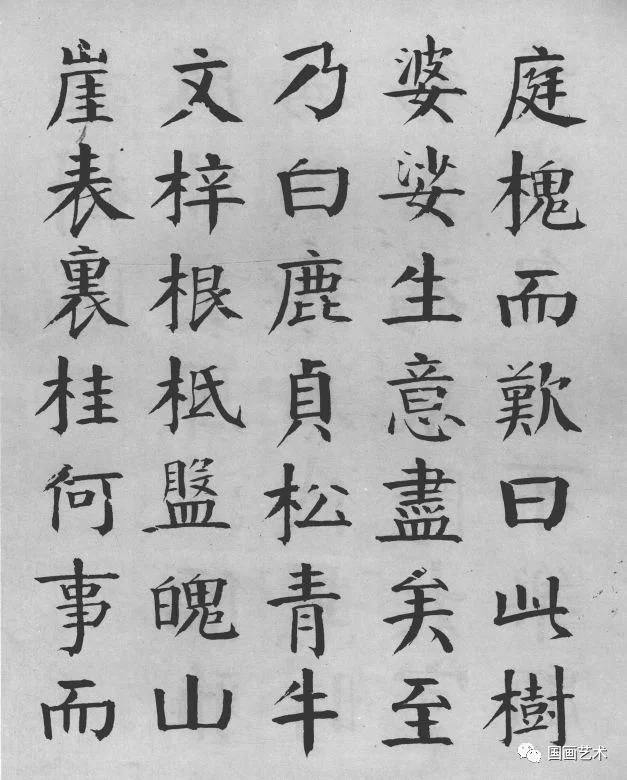 庭槐而歎曰此樹
婆娑生意盡矣至
乃白鹿貞松青牛
文梓根柢盤魄山
崖表裏桂何事而
国画艺术